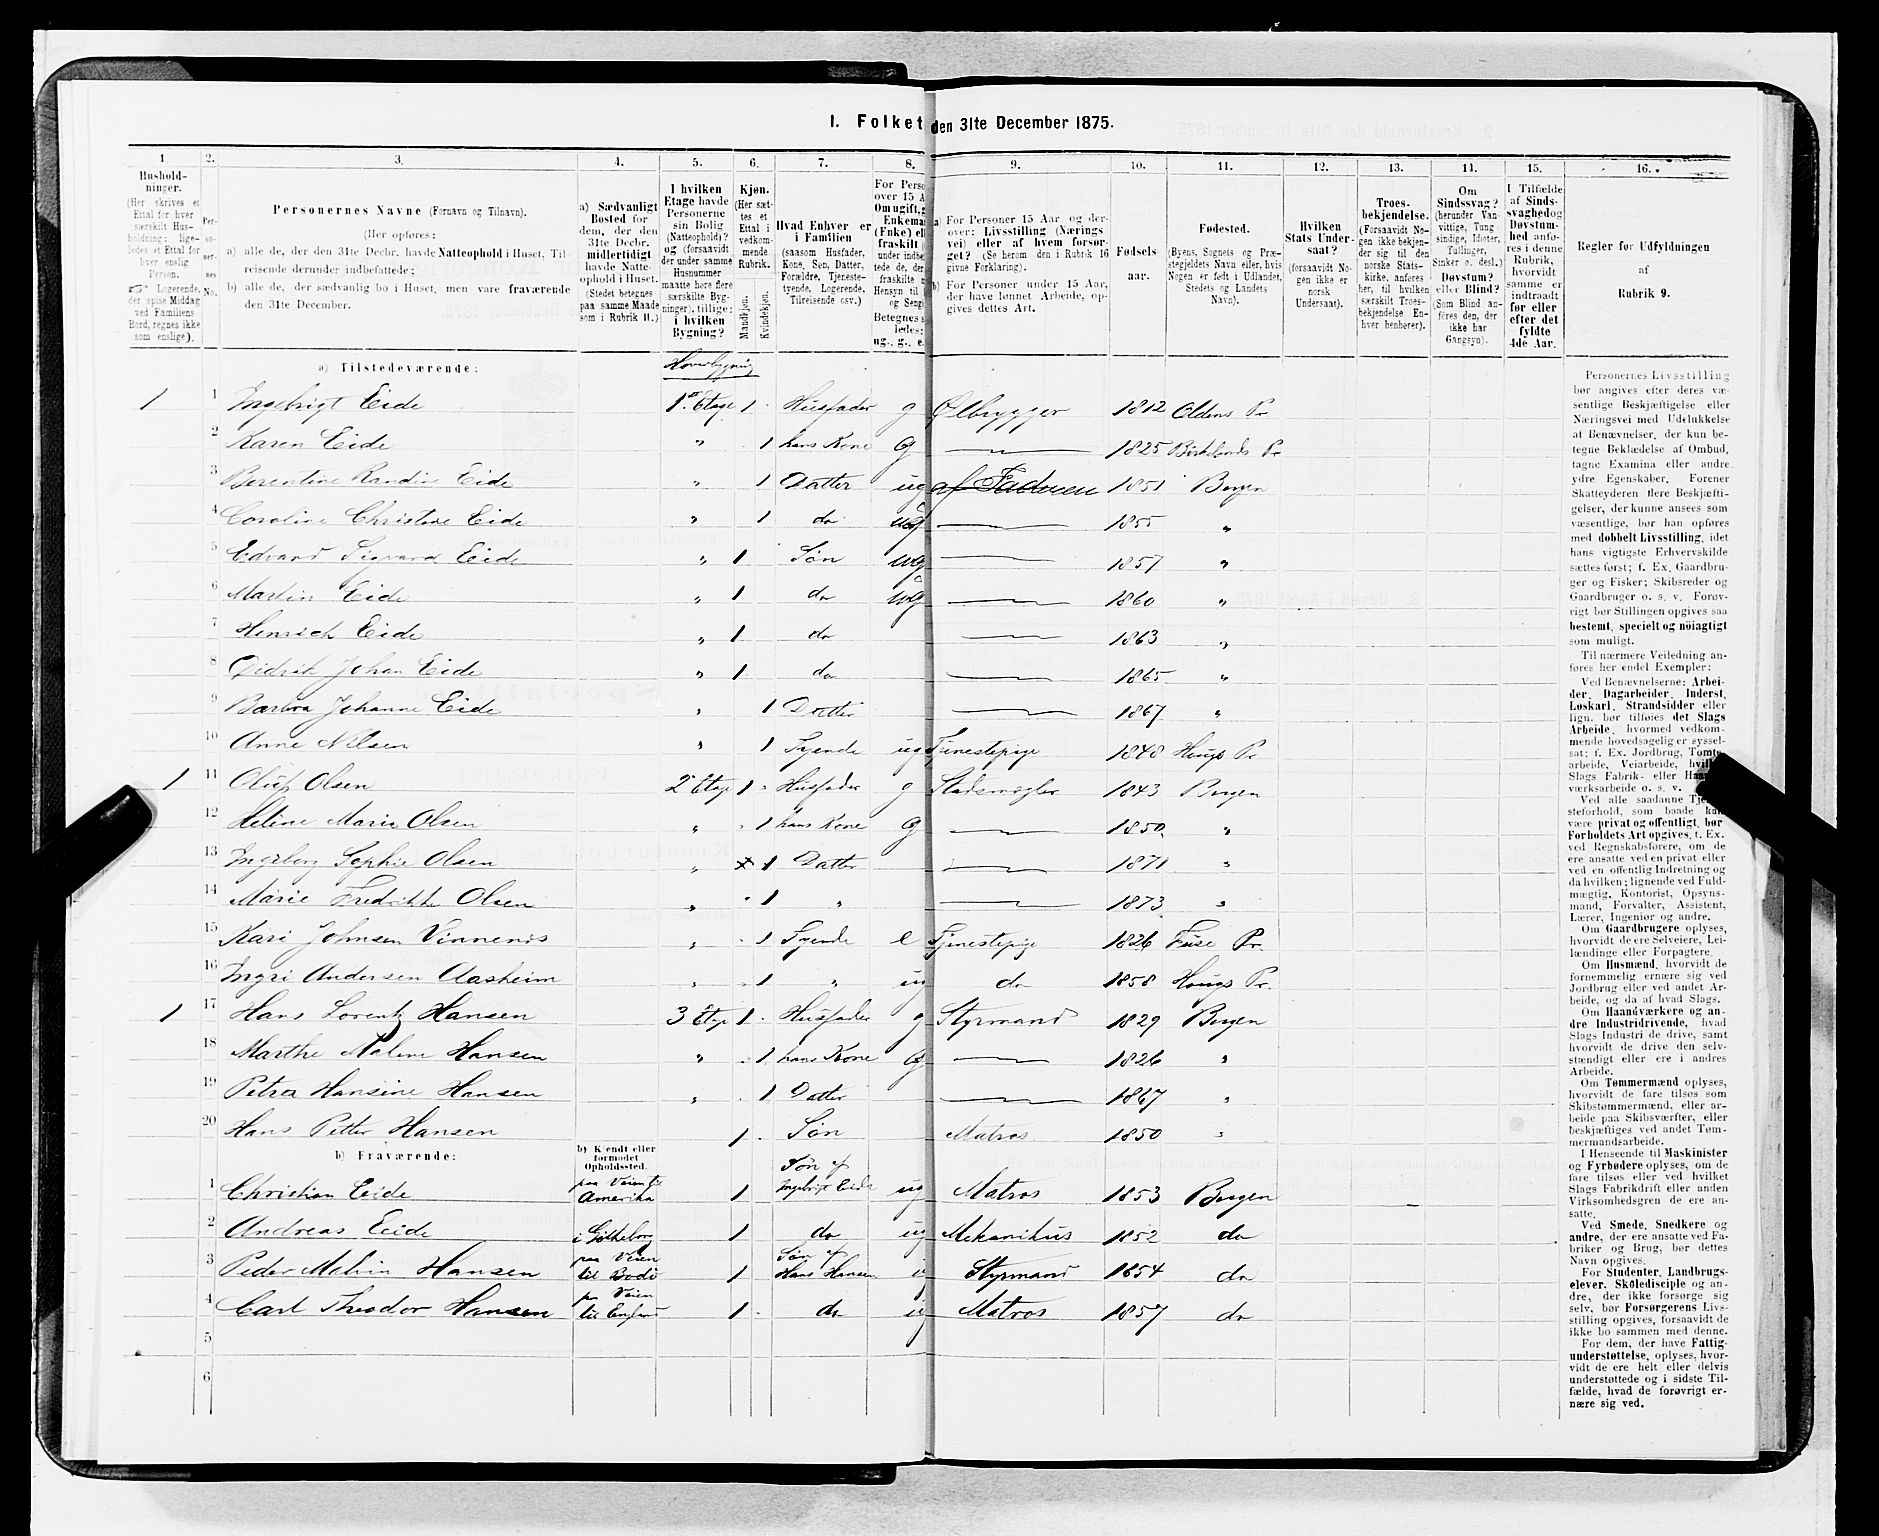 I. Folketal den 31te December 1875.
1. 2. 3. 4. 5. 6. 7. 8. 9. 10. 11. 12. 13. 14. 15. 16.
Hushold-
ninger.
(Her skrives et
Ettal for hver
særskilt Hus-
holdning; lige-
ledes et Ettal for
hver enslig
Person.
☞ Logerende,
der spise Middag
ved Familiens
Bord, regnes ikke
som enslige).
Per-
so-
ner-
nes
No.
Personernes Navne (Fornavn og Tilnavn).
(Her opføres:
a) alle de, der den 31te Decbr. havde Natteophold i Huset, Til-
reisende derunder indbefattede;
b) alle de, der sædvanlig bo i Huset, men vare fraværende
den 31te December.
a) Sædvanligt
Bosted for
dem, der den
31te Decbr.
midlertidigt
havde Natte-
ophold i Huset.
(Stedet betegnes
paa samme Maade
som i Rubrik 11.)
I hvilken
Etage havde
Personerne
sin Bolig
(Natteophold)?
og (forsaavidt
der under samme
Husnummer
maatte høre flere
særskilte Byg-
ninger), tillige:
i hvilken
Bygning?
Kjøn.
(Her sæt-
tes et
Ettal i
vedkom-
mende
Rubrik.
Mandkjøn.
Kvindekjøn.
Hvad Enhver er
i Familien
(saasom Husfader,
Kone, Søn, Datter,
Forældre, Tjeneste-
tyende, Logerende,
Tilreisende osv.)
For Perso
over 15 A
Om ugift, g
Enkema
(Enke) el
fraskilt (
under indbe
tede de, der
fraskilte
Hensyn til
og Seng
Betegnes s
ledes:
ug., g., e.
a) For Personer 15 Aar og der-
over: Livsstilling (Nærings
vei) eller af hvem forsør-
get? (Se herom den i Rubrik 16
givne Forklaring).
b) For Personer under 15 Aar,
der have lønnet Arbeide, op-
gives dettes Art.
Fødsels-
aar.
Fødested.
(Byens, Sognets og Præ-
stegjeldets Navn eller, hvis
Nogen er født i Udlandet,
Stedets og Landets
Navn).
Hvilken
Stats Under-
saat?
(forsaavidt No-
gen ikke er
norsk
Undersaat).
Troes-
bekjendelse.
(Forsaavidt No-
gen ikke bekjen-
der sig til den
norske Stats-
kirke, anføres
her, til hvilken
særskilt Troes-
bekjendelse En-
hver henhører).
Om
Sindssvag?
(herunder Van-
vittige, Tung
sindige, Idioter,
Tullinger,
Sinker o. desl.)
Døvstum?
eller Blind?
(Som Blind an-
føres den, der
ikke har
Gangsyn).
I Tilfælde
af Sinds-
svaghed og
Døvstum-
hed anfø-
res i denne
Rubrik,
hvorvidt
samme er
indtraadt
før eller
efter det
fyldte
4de Aar.
Regler for Udfyldningen
af
Rubrik 9.
a) Tilstedeværende: Hovedbygning
1 1 Ingebrigt Eide 1ste Etage 1 Husfader g Ølbrygger 1812 Oldens Pr
2 Karen Eide " 1 hans Kone G 1825 Birkelands Pr
3 Berentine Randine Eide " 1 Datter ug af Faderen 1851 Bergen
4 Caroline Christine Eide " 1 do ug 1855 "
5 Edvard Sigvard Eide " 1 Søn ug 1857 "
6 Martin Eide " 1 do ug 1860 "
7 Henrich Eide " 1 do 1863 "
8 Didrik Johan Eide " 1 do 1865 "
9 Barbra Johanne Eide " 1 Datter 1867 "
10 Anne Nilsen " 1 Tyende ug Tjenestepige 1848 Hougs Pr
1 11 Oluf Olsen 2 Etage 1 Husfader g Stadsmægler 1843 Bergen
12 Heline Marie Olsen " 1 hans Kone G 1850 "
13 Ingeborg Sophie Olsen " 1 Datter 1871 "
14 Marie Fredrikke Olsen " 1 " 1873 "
15 Kari Johnsen Vinnenes " 1 Tyende e Tjenestepige 1826 Fuse Pr.
16 Ingri Andersen Aasheim " 1 " ug do 1858 Hougs Pr.
1 17 Hans Lorentz Hansen 3 Etage 1 Husfader g Styrmand 1829 Bergen
18 Marthe Malene Hansen " 1 hans Kone G 1826 "
19 Petra Hansine Hansen 1 Datter 1867 "
20 Hans Petter Hansen 1 Søn Matros 1850 "
b) Fraværende: b) Kjendt eller
formodet
Opholdssted.
1 Christian Eide paa Veien til Amerika 1 Søn af Ingebrigt Eide ug Matros 1853 Bergen
2 Andreas Eide i Gøtheborg 1 do ug Mekanikus 1852 do
3 Peder Malvin Hansen paa Veien til Bodø 1 Søn af Hans Hansen Styrmand 1854 do
4 Carl Theodor Hansen paa Veien til England 1 do ug Matros 1857 do
5
6
Personernes Livsstilling
bør angives efter deres væ-
sentlige Beskjæftigelse eller
Næringsvei med Udelukkelse
af Benævnelser, der kun be-
tegne Beklædelse af Ombud,
tagne Examina eller andre
ydre Egenskaber. Forener
Skatteyderen flere Beskjæfti-
gelser, der kunne ansees som
væsentlige, bør han opføres
med dobbelt Livsstilling, idet
hans vigtigste Erhvervskilde
sættes først; f. Ex. Gaardbru-
ger og Fisker; Skibsreder og
Gaardbruger o. s. v. Forøv-
rigt bør Stillingen opgives saa
bestemt, specielt og nöiagtigt
som muligt.
Til nærmere Veiledning an-
føres her endel Exempler:
Ved Benævnelserne: Arbei-
der, Dagarbeider, Inderst,
Løskarl, Strandsidder eller
lign. bør tilføies det Slags
Arbeide, hvormed vedkom-
mende hovedsagelig er syssel-
sat; f. Ex. Jordbrug, Tomte-
arbeide, Veiarbeide, hvilket
Slags Fabrik- eller Haand-
værksarbeide o. s. v.
Ved alle saadanne Tje-
steforhold, som baade kan
være privat og offentligt, bør
Forholdets Art opgives, t. Ex.
ved Regnskabsførere, om de
ere ansatte ved en privat eller
ved en offentlig Indretning og
da hvilken; lignende ved Fuld-
mægtig, Kontorist, Opsyns-
mand, Forvalter, Assistent,
Lærer, Ingeniør og andre.
Om Gaardbrugere oplyses,
hvorvidt de ere Selveiere, Lei-
lændinge eller Forpagtere.
Om Husmænd, hvorvidt de
fornemmelig ernære sig ved
Jordbrug eller ved andet Ar-
beide, og da af hvad Slags.
Om Haandværkere og an-
dre Industridrivende, hvad
Slags Industri de drive, samt
hvorvidt de drive den selv-
stændigt eller ere i andres
Arbeide.
Om Tømmermænd oplyses,
hvorvidt de fare tilsøs som
Skibstømmermænd, eller ar-
beide paa Skibsværfter, eller
beskjæftiges ved andet Tøm-
mermandsarbeide.
I Henseende til Maskinister
og Fyrbødere oplyses, om de
fare tilsøs eller ved hvilket
Slags Fabrikdrift eller anden
Virksomhedsgren de ere an-
satte.
Ved Smede, Snedkere og
andre, der ere ansatte ved Fa-
briker og Brug, bør dettes
Navn opgives.
For Studenter, Landbrugs-
elever, Skoledisciple og an-
dre, der ikke forsørge sig
selv, bør Forsørgerens Livs-
stilling opgives, forsaavidt de
ikke bo sammen med denne.
For dem, der have Fattig-
understøttelse, oplyses, hvor-
vidt de ere helt eller delvis
understøttede og i sidste Til-
fælde, hvad de forøvrigt er-
nære sig ved.